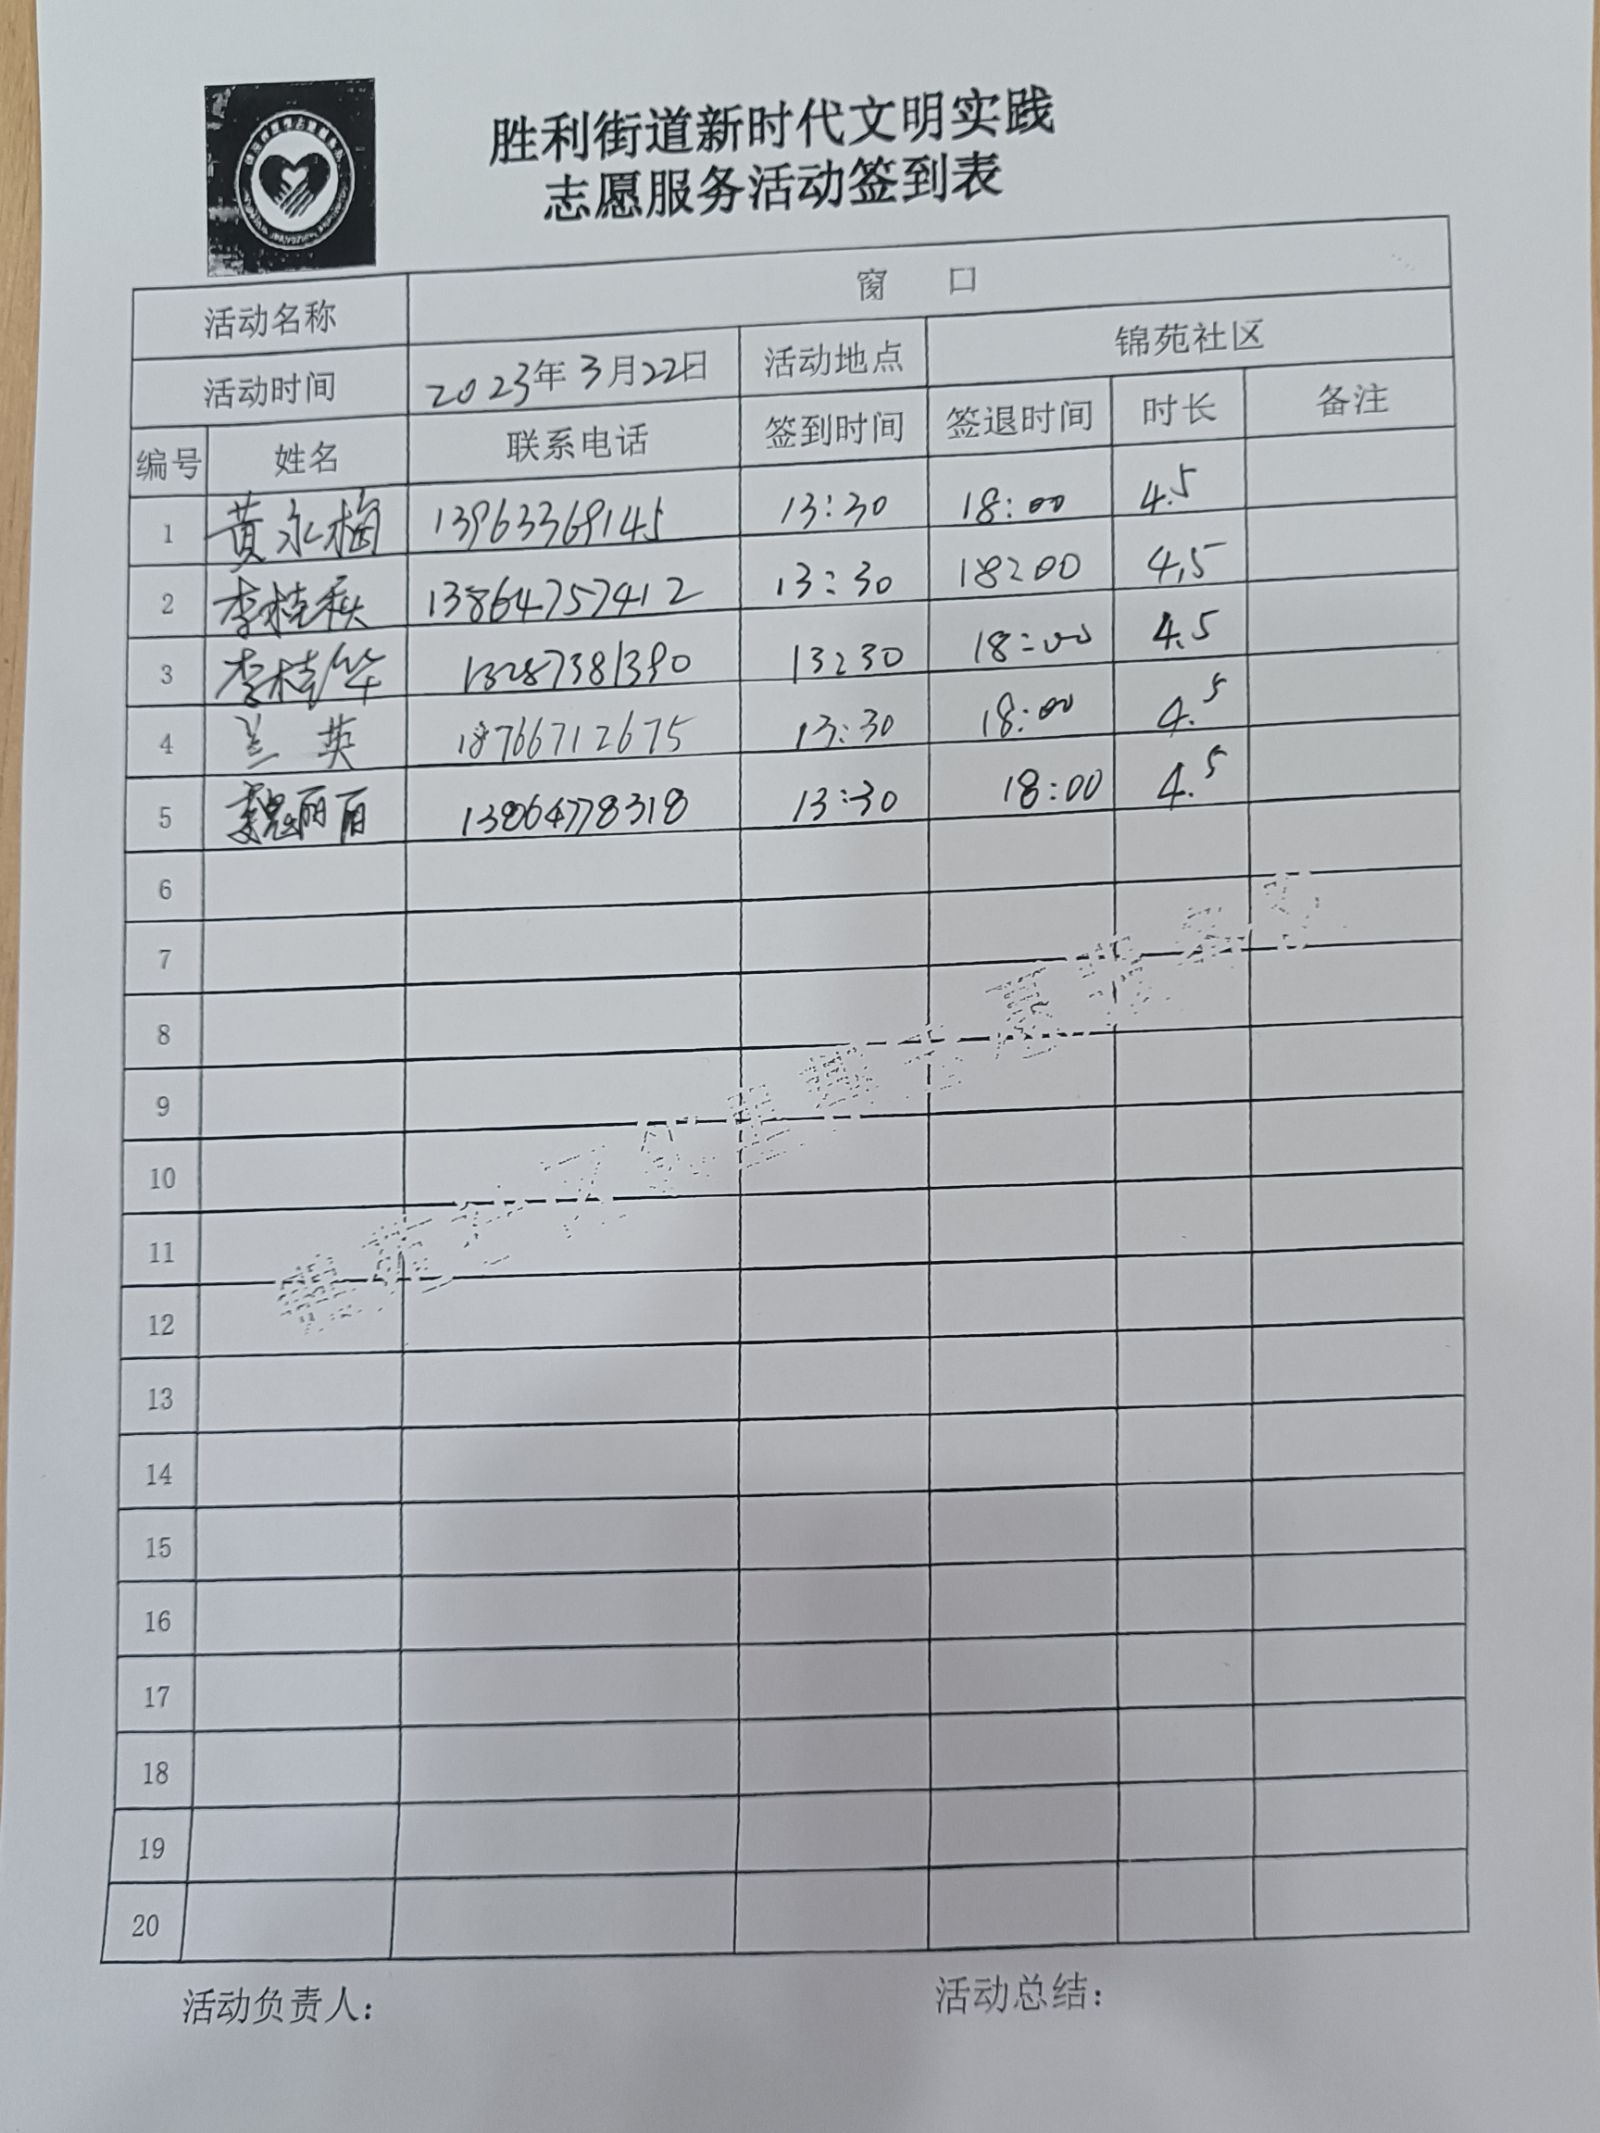 胜利街道新时代文明实践
志愿服务活动签到表
活动名称 窗 口
活动时间 2023年3月22日 活动地点 锦苑社区
编号 姓名 联系电话 签到时间 签退时间 时长 备注
1 黄永梅 13963369145 13:30 18:00 4.5
2 李桂秩 13864757412 13:30 18:00 4.5
3 李桂华 13287381390 13:30 18:00 4.5
4 兰英 18766712675 13:30 18:00 4.5
5 魏丽丽 13864778318 13:30 18:00 4.5
6
7
8
9
10
11
12
13
14
15
16
17
18
19
20
活动负责人: 活动总结: